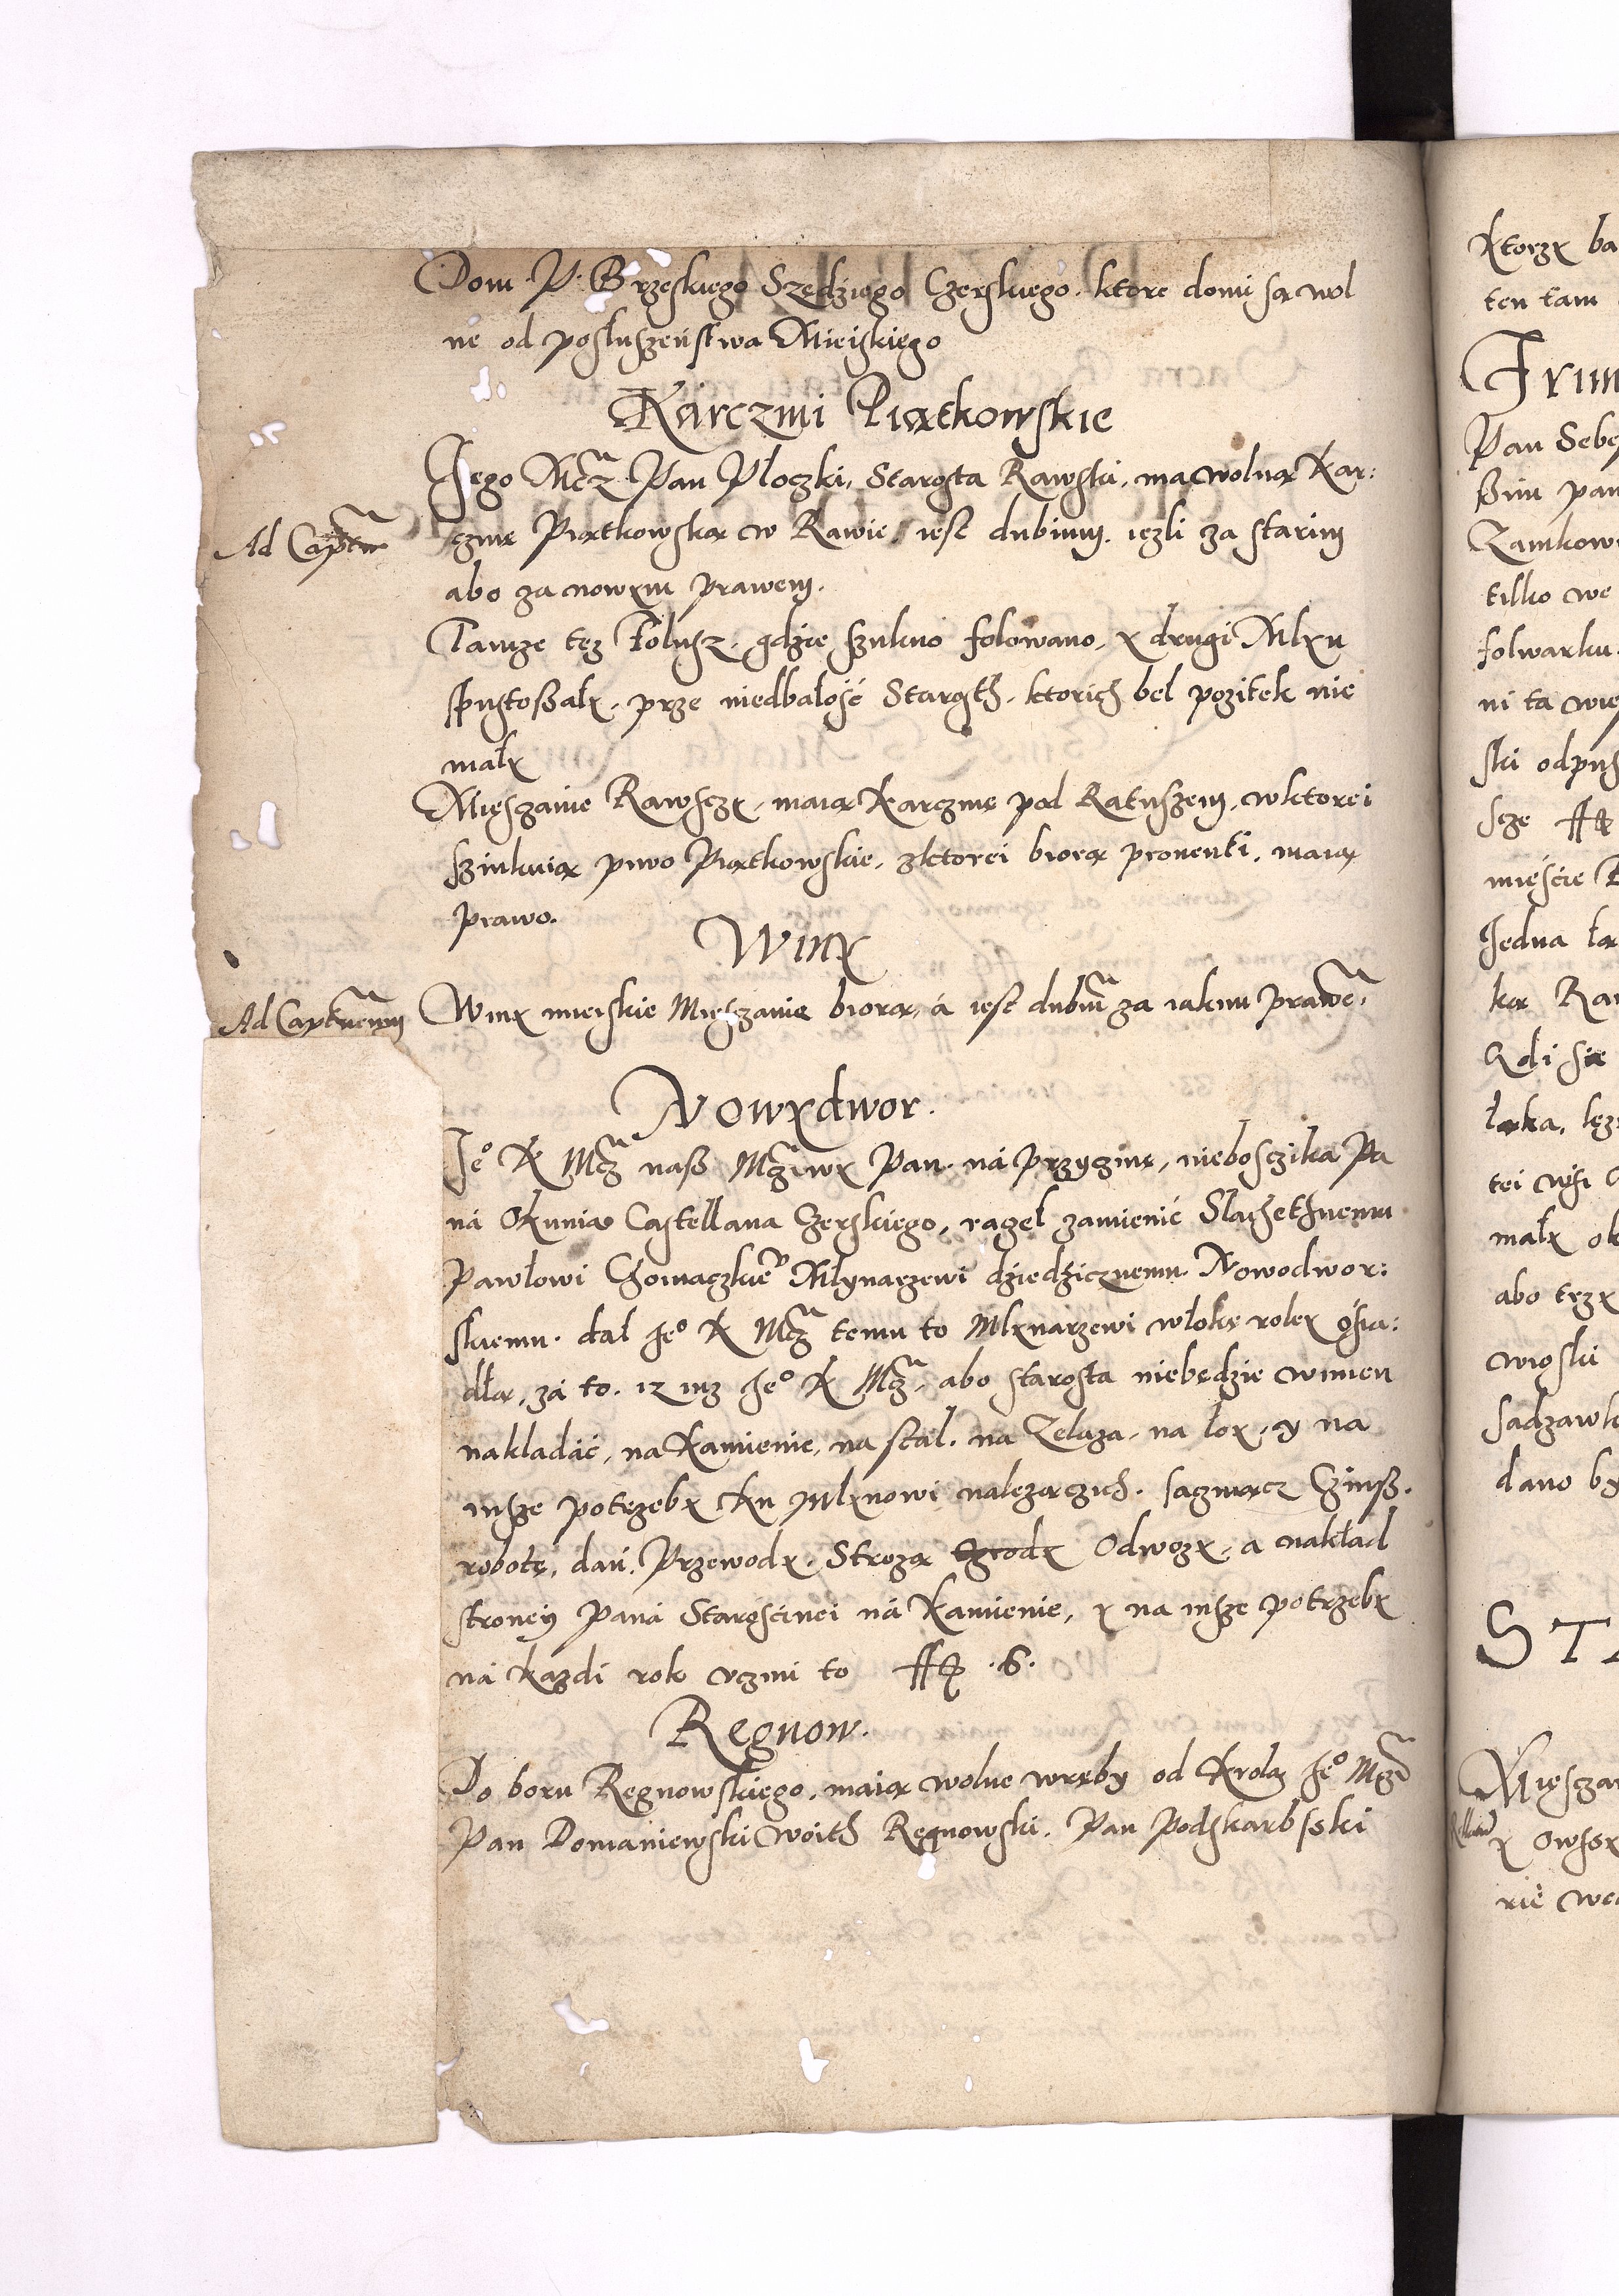 Dom P. Brzeskiego Szędziego Czerskiego. ktore domi są wol
ne od posłuszeństwa Mieiskiego
Karczmi Piątkowskie
Jego Mcz Pan Płoczki, Starosta Rawski, ma wolną Kar:
Ad Captm
czmę Piątkowską w Rawie, iest dubium. iezli za starim
abo za nowym prawem.
Tamże też Folusz, gdzie szukno folowano, y drugi Mlyn
spustoszały, prze niedbałość Starosth, ktorich beł pożitek nie
mały
Miesczanie Rawsczy, maią Karczmę pod Ratuszem, w ktorei
szinkuią piwo Piątkowskie, z ktorei biorą prouenti, maią
prawo.
Winy
Ad Captneum
Winy mieiskie Miesczanie biorą, á iest dubiũ za iakim prawẽ,
Nowydwor.
Je° K Mcz nasz Mcziwy Pan, ná przyczinę, nieboscika Pa
ná Okunia Castellana Czerskiego, raczeł zamienić Slachethnemu
Pawłowi Chomaczkiẽ Młynarzewi dziedzicznemu Nowodwor:
skiemu. dał Je° K Mcz temu to Mlynarzewi włokę roley ośia:
dłą, zá to, iz iuz Je° K Mcz, abo starosta niebędzie winien
nakładáć, na Kamienie, na stal, na Zelaza, na łoy, y na
insze potrzeby Ku Mlynowi należączich. sacziuącz Czinsz.
robotę, dań, Przewody, Strożą Odwozy, a nakład
stroney Paná Starościnei ná Kamienie, y na insze potrzeby
ná każdi rok vczini to ff .6.
Regnow.
Do boru Regnowskiego, maią wolne wręby od Krolą Je° Mczi
Pan Domaniewski Woith Regnowski. Pan Podskarbsski
Ktorzy ba
ten tam
Frim
Pan Sebe
szim pan
Zamkow
tilko we
folwarku.
ni ta wie
ski odpus
scze ff
mieście
Jedna łą
ką Raw
Gdi się
łąka, lez
tei wsi
mały ok
abo trzy
wioski
sadzawk
dano by
STA
Miesczan
y owsy
rie wed